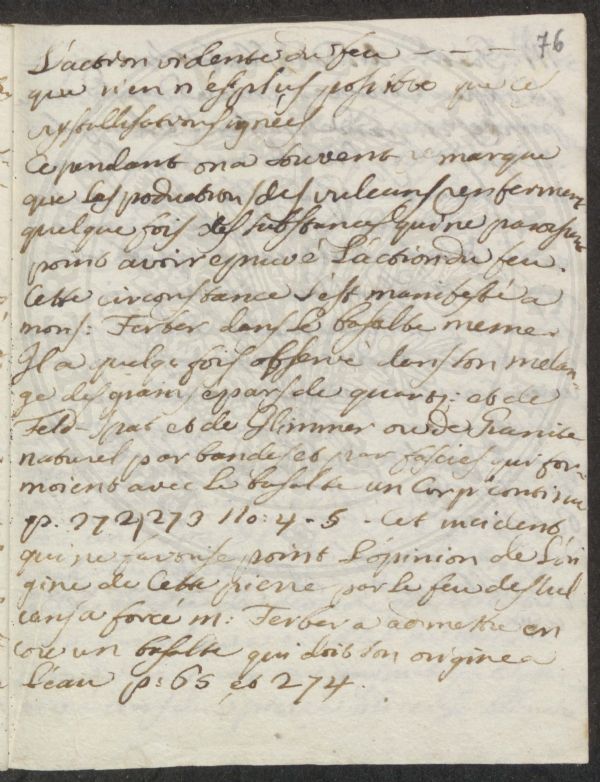 76
L'action violente du feu - - - -
que rien n'est plus possible que ces
crystallisations ignées
Cependant on a souvent remarque
que les productions des vulcans renferment
quelque fois des substances qui ne paroissent
point avoir epruvé L'action du feu.
Cette circonstance s'est manifesté a
mons: Ferber dans le basalte meme
Il a quelqe fois observé dans son melan-
ge des grains epars de quartz: et de
Feld-spat et de Glimmer ou de Granite
naturel par bandes et par fascies qui for
moient avec le basalte un Corp continu
p. 272, 273 No: 4-5 - Cet incident
qui ne favorise point L'opinion de L'ori
gine de Cette pierre par le feu des vul
cans a forcé m: Ferber a admettre en
core un basalte qui doit son origine a
L'eau p: 65 et 274.